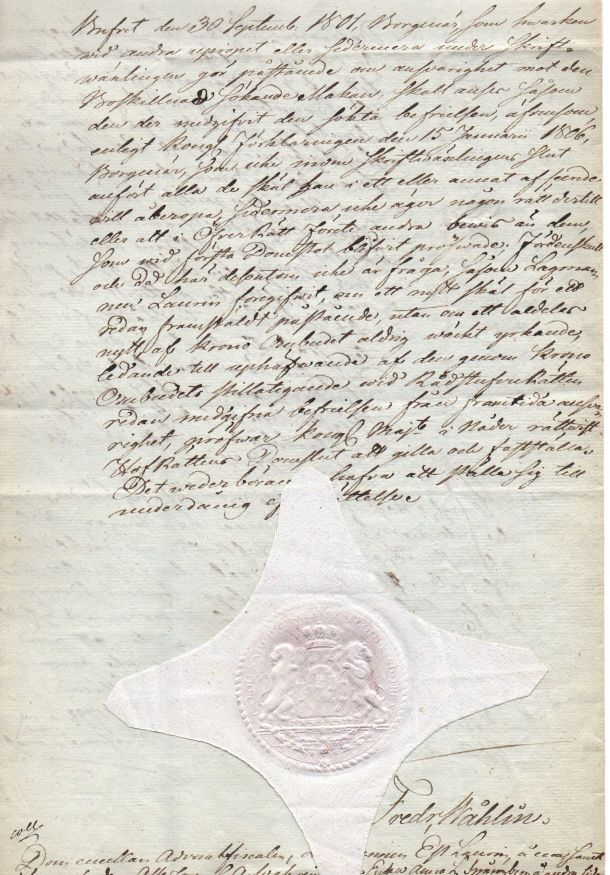 Brefvet den 30 Septemb. 1801. Borgenär som hwarken
wid andra upropet eller sedermera under Skrift-
wäxlingen gör påstående om answarighet mot den
Boskillnad Sökande Makan, skall anses såsom
den der medgifvit den sökta befrielsen, äfvensom
enligt Kongl. Förklaringen den 15 Januarii 1806,
Borgenär, som icke inom Skriftwäxlingens Slut
anfört alla de skäl han i ett eller annat afseende
will åberopa, sedermera icke äger någon rätt dertill
eller att i Öfver Rätt förete andra bewis än dem
som wid första Domstol blifvit pröfwade; Fördenskull
och då här dessutom icke är fråga, såsom Lagman
nen Laurin föregifvit, om ett nytt skäl för ett
redan framstäldt påstående, utan om ett aldeles
nytt af Krono Ombudet aldrig wäckt yrkande,
ledande till uphäfwande af den genom Krono
Ombudets stillatigande wid Rådstufvu Rätten
redan medgifna befrielsen från framtida answa-
righet, pröfwar Kongl. Majt. i Nåder rättwist
HofRättens Domslut att gilla och fastställa.
Det wederbörande hafva att ställa sig till
underdånig efterrättelse
Fredr. Wåhlin.
coll
Domen emellan Advocatfiscalen, Laurin, å ena, samt